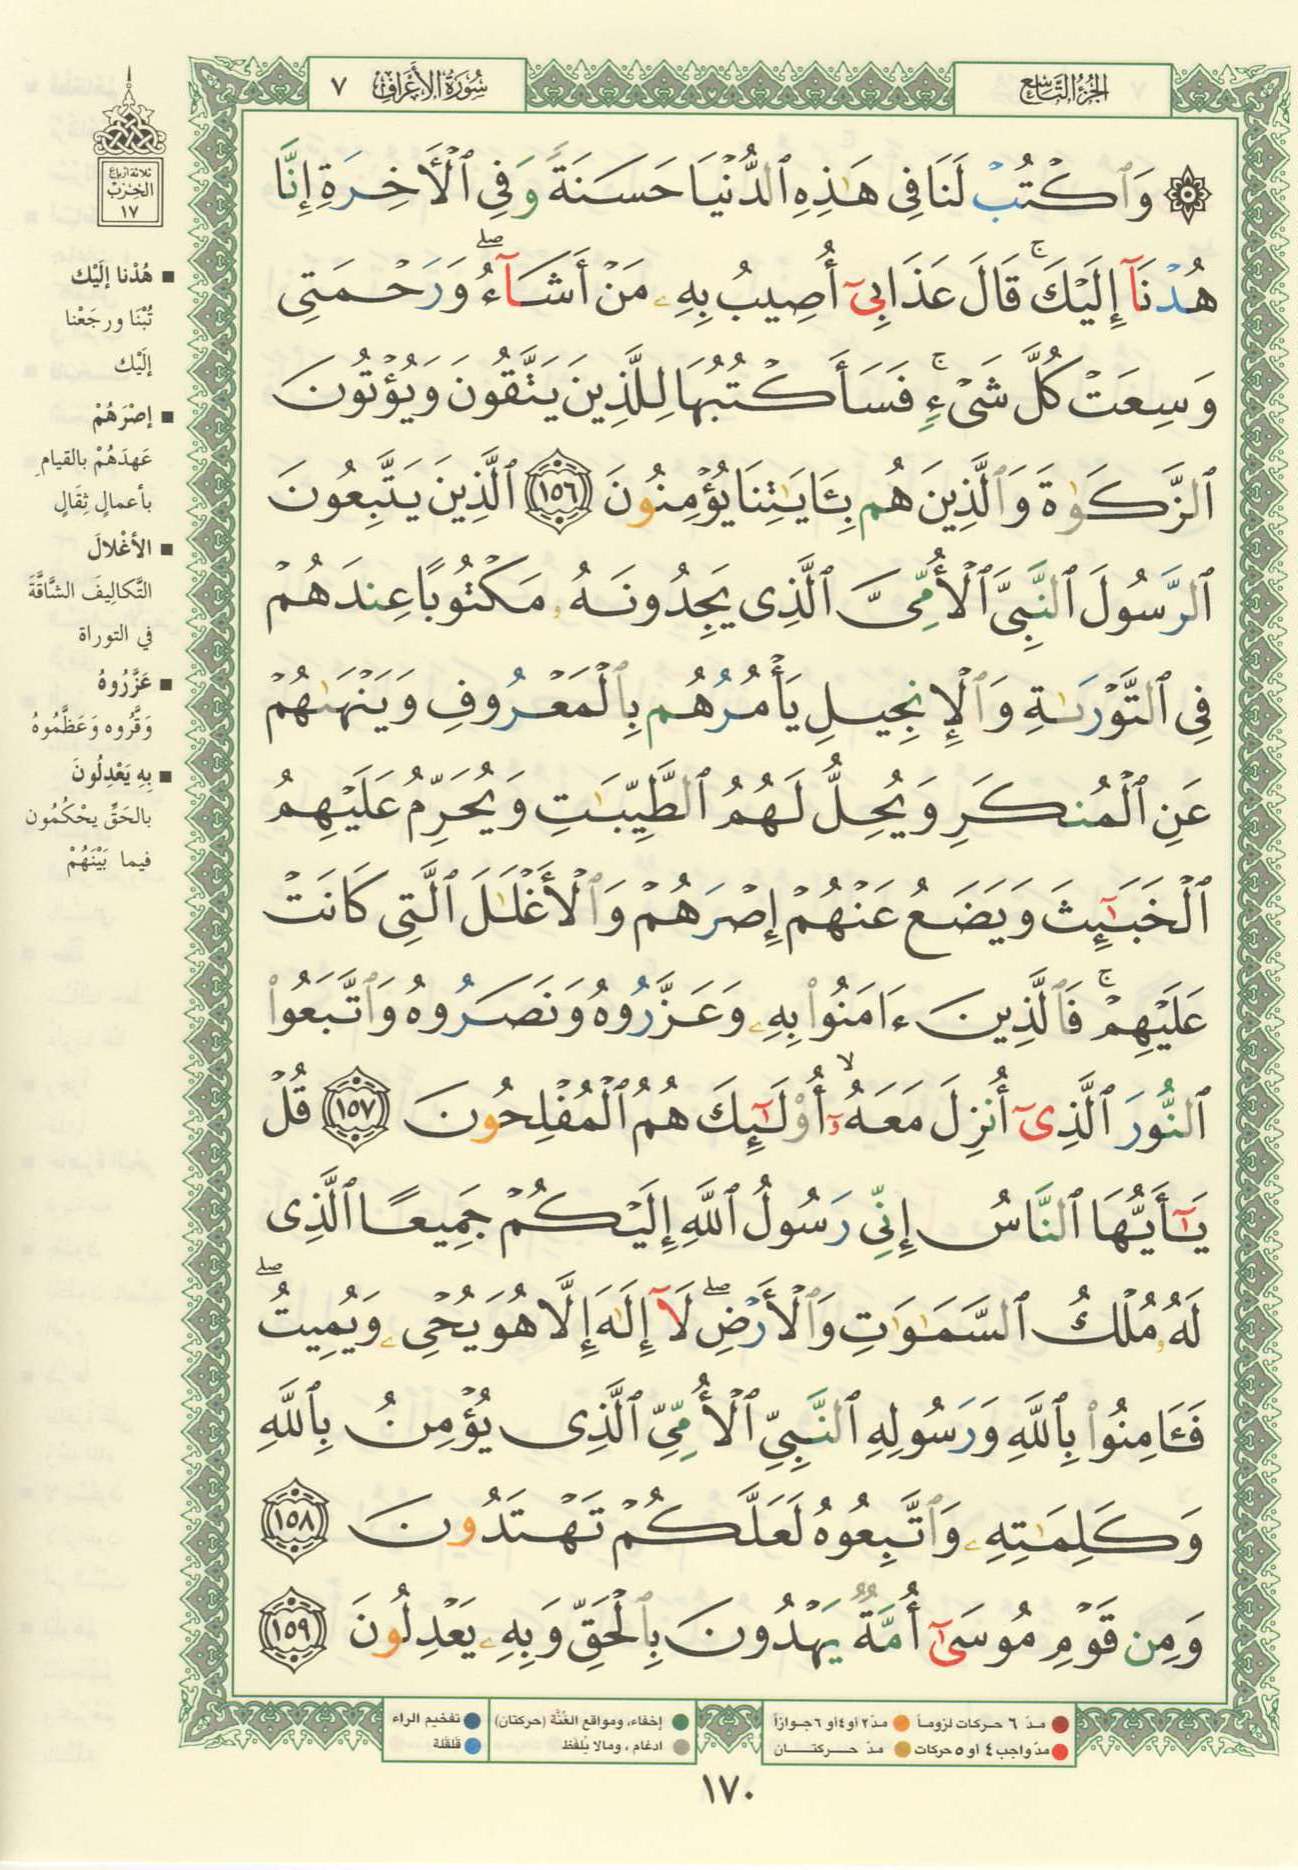 الجزء التاسع
سورة الأعراف ٧
ثلاثة أرباع
الحزب
١٧
۞ وَٱكْتُبْ لَنَا فِى هَٰذِهِ ٱلدُّنْيَا حَسَنَةً وَفِى ٱلْأَخِرَةِ إِنَّا
هُدْنَآ إِلَيْكَ ۚ قَالَ عَذَابِىٓ أُصِيبُ بِهِۦ مَنْ أَشَآءُ ۖ وَرَحْمَتِى
وَسِعَتْ كُلَّ شَىْءٍ ۚ فَسَأَكْتُبُهَا لِلَّذِينَ يَتَّقُونَ وَيُؤْتُونَ
ٱلزَّكَوٰةَ وَٱلَّذِينَ هُم بِـَٔايَـٰتِنَا يُؤْمِنُونَ ١٥٦ ٱلَّذِينَ يَتَّبِعُونَ
ٱلرَّسُولَ ٱلنَّبِىَّ ٱلْأُمِّىَّ ٱلَّذِى يَجِدُونَهُۥ مَكْتُوبًا عِندَهُمْ
فِى ٱلتَّوْرَىٰةِ وَٱلْإِنجِيلِ يَأْمُرُهُم بِٱلْمَعْرُوفِ وَيَنْهَىٰهُمْ
عَنِ ٱلْمُنكَرِ وَيُحِلُّ لَهُمُ ٱلطَّيِّبَـٰتِ وَيُحَرِّمُ عَلَيْهِمُ
ٱلْخَبَـٰٓئِثَ وَيَضَعُ عَنْهُمْ إِصْرَهُمْ وَٱلْأَغْلَـٰلَ ٱلَّتِى كَانَتْ
عَلَيْهِمْ ۚ فَٱلَّذِينَ ءَامَنُوا۟ بِهِۦ وَعَزَّرُوهُ وَنَصَرُوهُ وَٱتَّبَعُوا۟
ٱلنُّورَ ٱلَّذِىٓ أُنزِلَ مَعَهُۥٓ ۙ أُو۟لَـٰٓئِكَ هُمُ ٱلْمُفْلِحُونَ ١٥٧ قُلْ
يَـٰٓأَيُّهَا ٱلنَّاسُ إِنِّى رَسُولُ ٱللَّهِ إِلَيْكُمْ جَمِيعًا ٱلَّذِى
لَهُۥ مُلْكُ ٱلسَّمَـٰوَٰتِ وَٱلْأَرْضِ ۖ لَآ إِلَـٰهَ إِلَّا هُوَ يُحْىِۦ وَيُمِيتُ ۖ
فَـَٔامِنُوا۟ بِٱللَّهِ وَرَسُولِهِ ٱلنَّبِىِّ ٱلْأُمِّىِّ ٱلَّذِى يُؤْمِنُ بِٱللَّهِ
وَكَلِمَـٰتِهِۦ وَٱتَّبِعُوهُ لَعَلَّكُمْ تَهْتَدُونَ ١٥٨
وَمِن قَوْمِ مُوسَىٰٓ أُمَّةٌ يَهْدُونَ بِٱلْحَقِّ وَبِهِۦ يَعْدِلُونَ ١٥٩
■ هُدْنا إلَيْك
تُبْنَا ورجَعْنا
إلَيْك
■ إصْرَهُمْ
عَهدَهُمْ بالقيامِ
بأعمالٍ ثِقَالٍ
■ الأغْلالَ
التَّكالِيفَ الشَّاقَّةَ
في التوراة
■ عَزَّرُوهُ
وَقَّرُوه وَعَظَّمُوهُ
■ بِهِ يَعْدِلُونَ
بالحَقِّ يحْكُمُون
فيما بَيْنَهُمْ
مدّ ٦ حركات لزوماً
مدّ ٢ أو ٤ أو ٦ جوازاً
مدّ واجب ٤ أو ٥ حركات
مدّ حركتان
إخفاء، ومواقع الغُنَّة (حركتان)
ادغام، وما لا يُلفَظ
تفخيم الراء
قلقلة
١٧٠